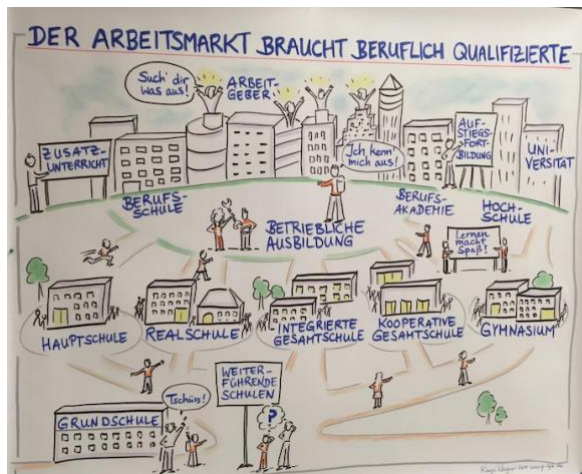 DER ARBEITSMARKT BRAUCHT BERUFLICH QUALIFIZIERTE
Such' dir
was aus!
ARBEIT-
GEBER
ZUSATZ-
UNTERRICHT
Ich kenn'
mich aus!
AUF-
STIEGS-
FORT-
BILDUNG
UNI-
VERSITÄT
BERUFS-
SCHULE
BETRIEBLICHE
AUSBILDUNG
BERUFS-
AKADEMIE
HOCH-
SCHULE
Lernen
macht
Spaß!
HAUPTSCHULE
REALSCHULE
INTEGRIERTE
GESAMTSCHULE
KOOPERATIVE
GESAMTSCHULE
GYMNASIUM
WEITER-
FÜHRENDE
SCHULEN
Tschüss!
GRUNDSCHULE
?